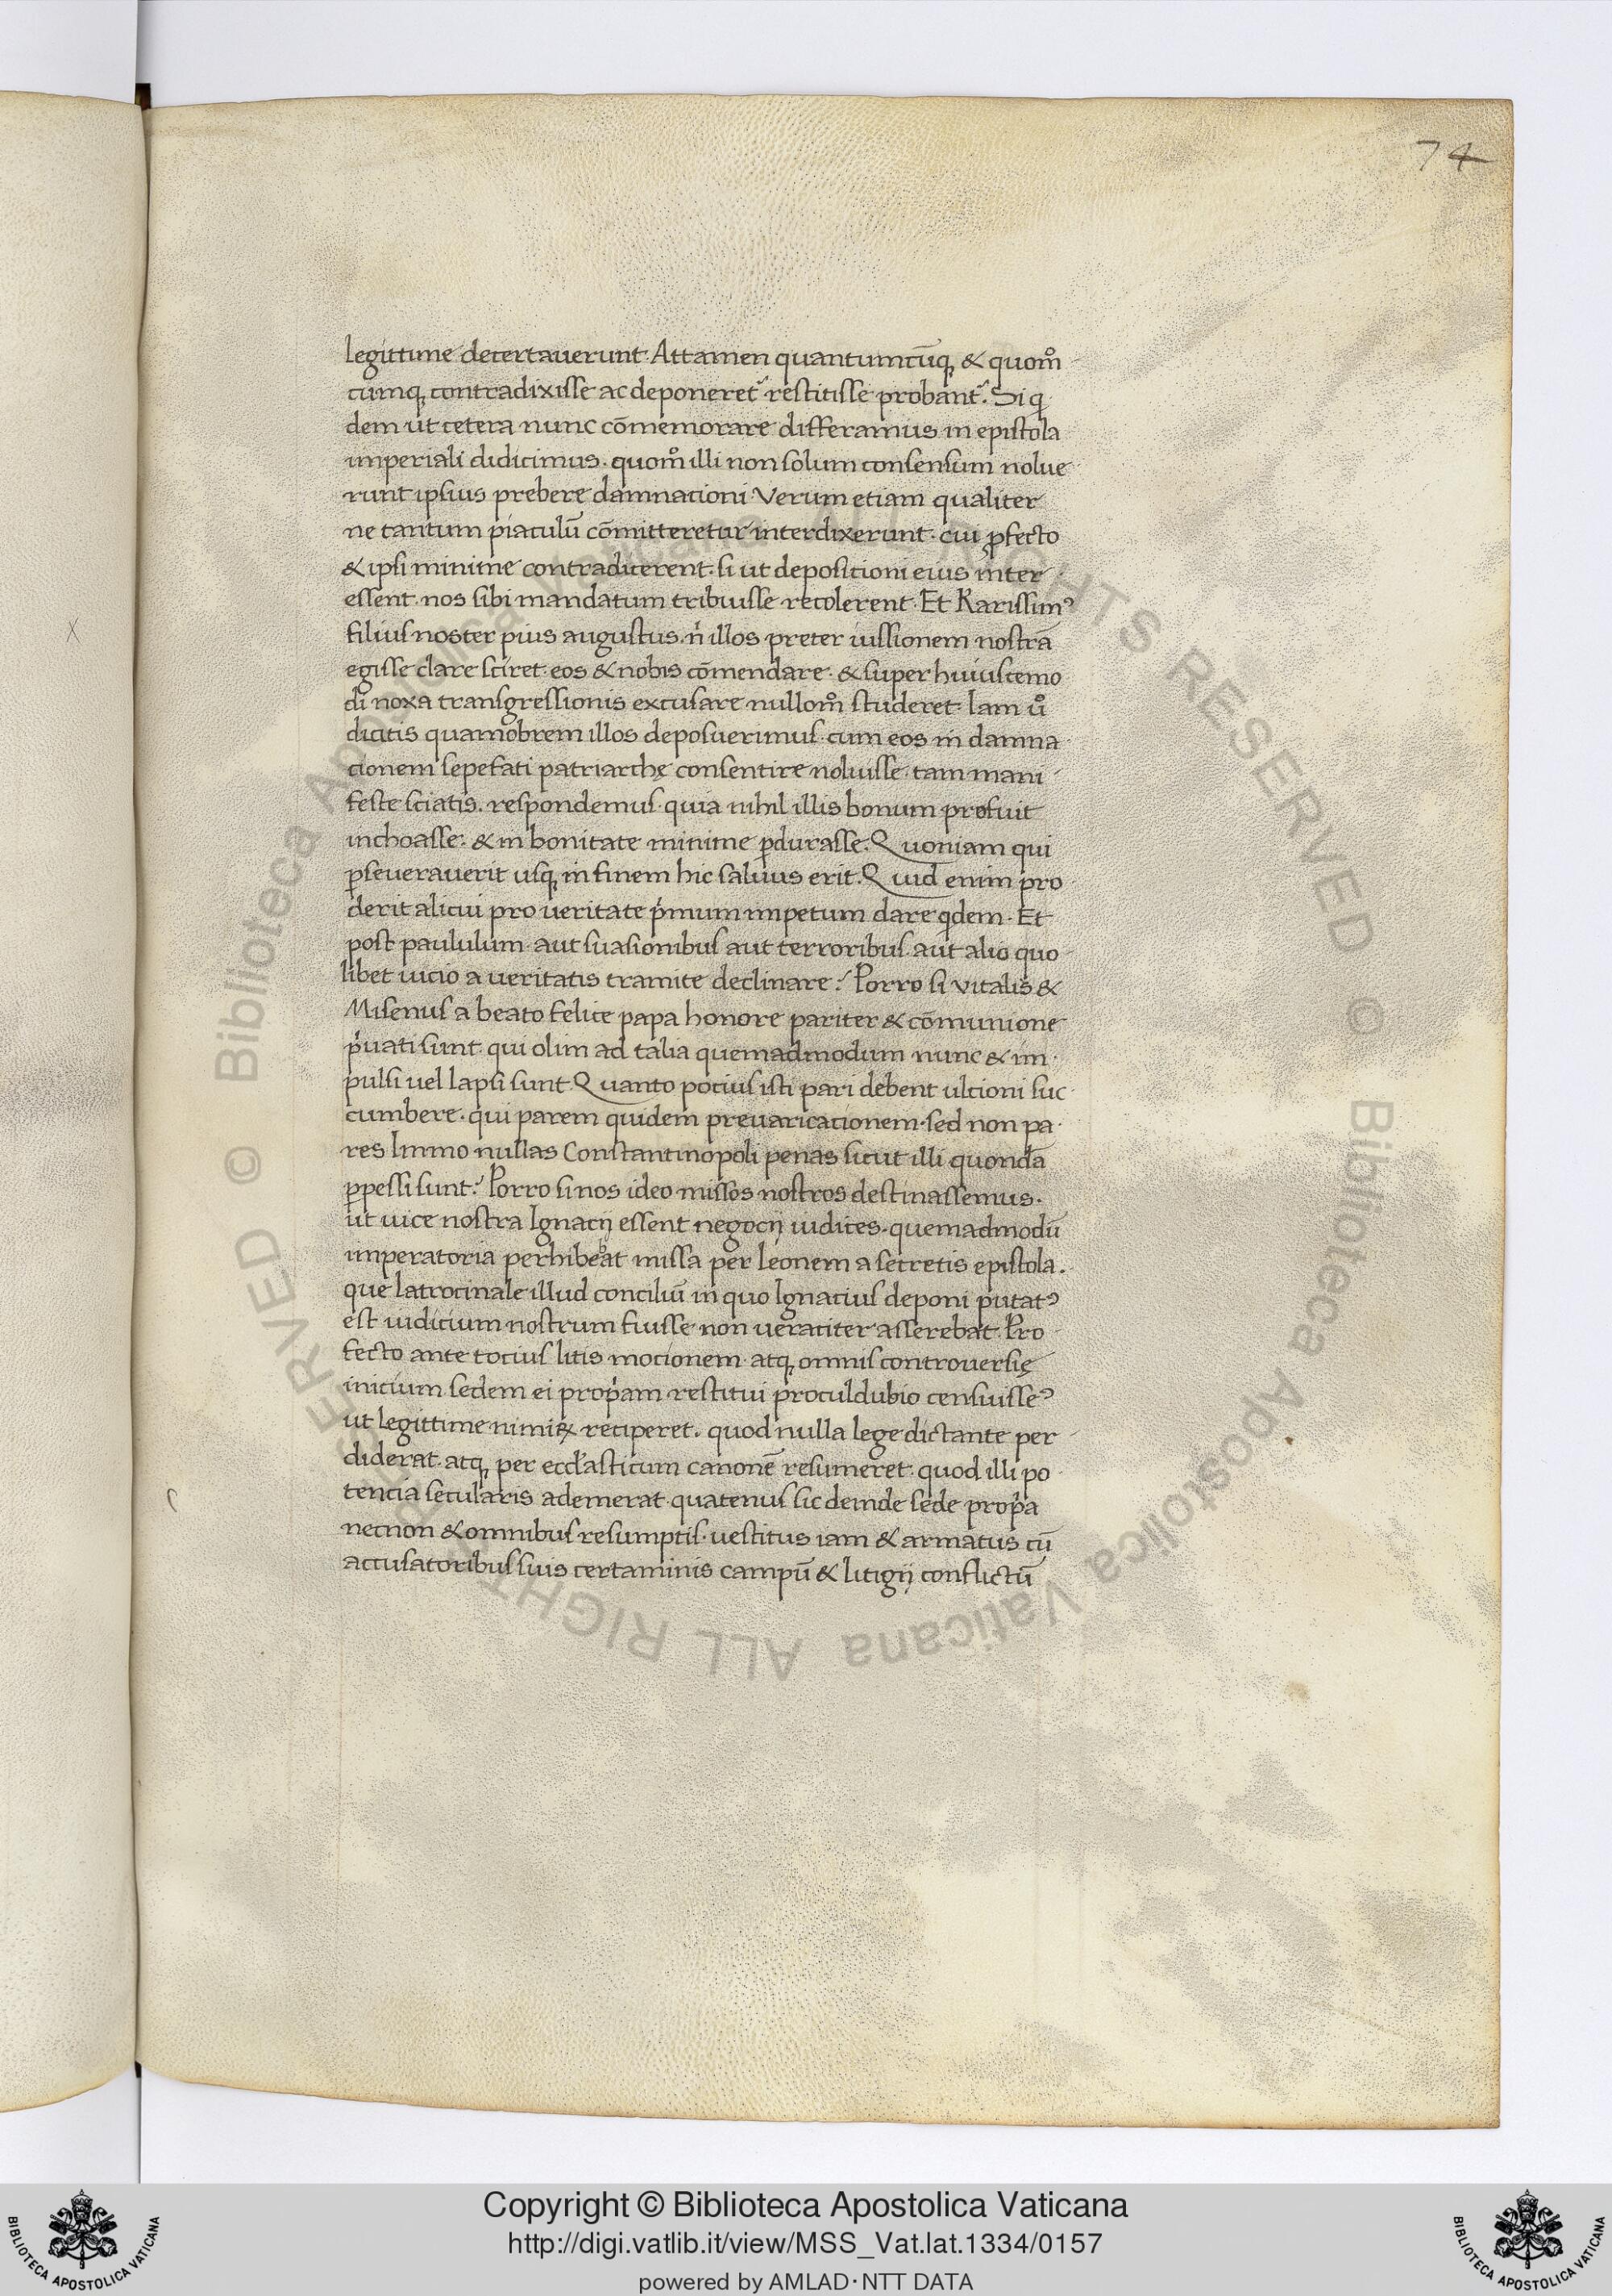 74
legittime decertauerunt. Attamen quantumcūq, & quom̊
cumq, contradixisse ac deponeret᷑ restitisse probant᷑. Si q
dem ut cetera nunc cōmemorare differamus in epistola
imperiali didicimus. quom̊ illi non solum consensum nolue
runt ipsius prebere damnacioni Verum etiam qualiter
ne tantum piaculū cōmitteretur interdixerunt. cui ꝓfecto
& ipsi minime contradicerent. si ut deposicioni eius inter
essent. nos sibi mandatum tribuisse recolerent. Et Karissimꝰ
filius noster pius augustus. n̄ illos preter iussionem nostrā
egisse clare sciret. eos & nobis cōmendare. & super huiuscemo
di noxa transgressionis excusare nullom̊ studeret. Iam ů
dicitis quamobrem illos deposuerimus. cum eos in damna
cionem sepefati patriarchę consentire noluisse. tam mani
feste sciatis. respondemus. quia nihil illis bonum profuit
inchoasse. & in bonitate minime ꝑdurasse. Quoniam qui
ꝑseuerauerit usq, in finem hic saluus erit. Quid enim pro
derit alicui pro ueritate pͥmum impetum dare qdem. Et
post paululum. aut suasionibus aut terroribus. aut alio quo
libet uicio a ueritatis tramite declinare? Porro si Vitalis &
Misenus a beato felice papa honore pariter & cōmunione
pͥuati sunt. qui olim ad talia quemadmodum nunc & im
pulsi uel lapsi sunt. Quanto pocius isti pari debent ulcioni suc
cumbere. qui parem quidem preuaricacionem. sed non pa
res Immo nullas Constantinopoli penas sicut illi quondā
ꝑpessi sunt? Porro si nos ideo missos nostros destinassemus.
ut uice nostra Ignacij essent negocij iudices. quemadmodū
imperatoria perhibebat missa per leonem a secretis epistola.
que latrocinale illud conciliū in quo Ignacius deponi putatꝰ
est iudicium nostrum fuisse non ueraciter asserebat. Pro
fecto ante tocius litis mocionem. atq, omnis controuersię
inicium sedem ei propͥam restitui proculdubio censuisseꝰ
ut legittime nimiꝝ reciperet. quod nulla lege dictante per
diderat. atq, per eccl'asticum canonē resumeret. quod illi po
tencia secularis ademerat. quatenus sic deinde sede propͥa
necnon & omnibus resumptis. uestitus iam & armatus cū
accusatoribus suis certaminis campū & litigij conflictū
© Biblioteca Apostolica Vaticana ALL RIGHTS RESERVED
© Biblioteca Apostolica Vaticana ALL RIGHTS RESERVED
Copyright © Biblioteca Apostolica Vaticana
http://digi.vatlib.it/view/MSS_Vat.lat.1334/0157
powered by AMLAD・NTT DATA
BIBLIOTECA APOSTOLICA VATICANA
BIBLIOTECA APOSTOLICA VATICANA